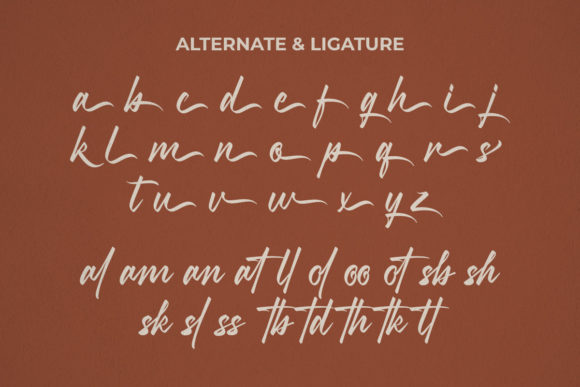 ALTERNATE & LIGATURE
a b c d e f g h i j
k l m n o p q r s
t u v w x y z
al am an at ll ol oo ot sb sh
sk sl ss tb td th tk tl